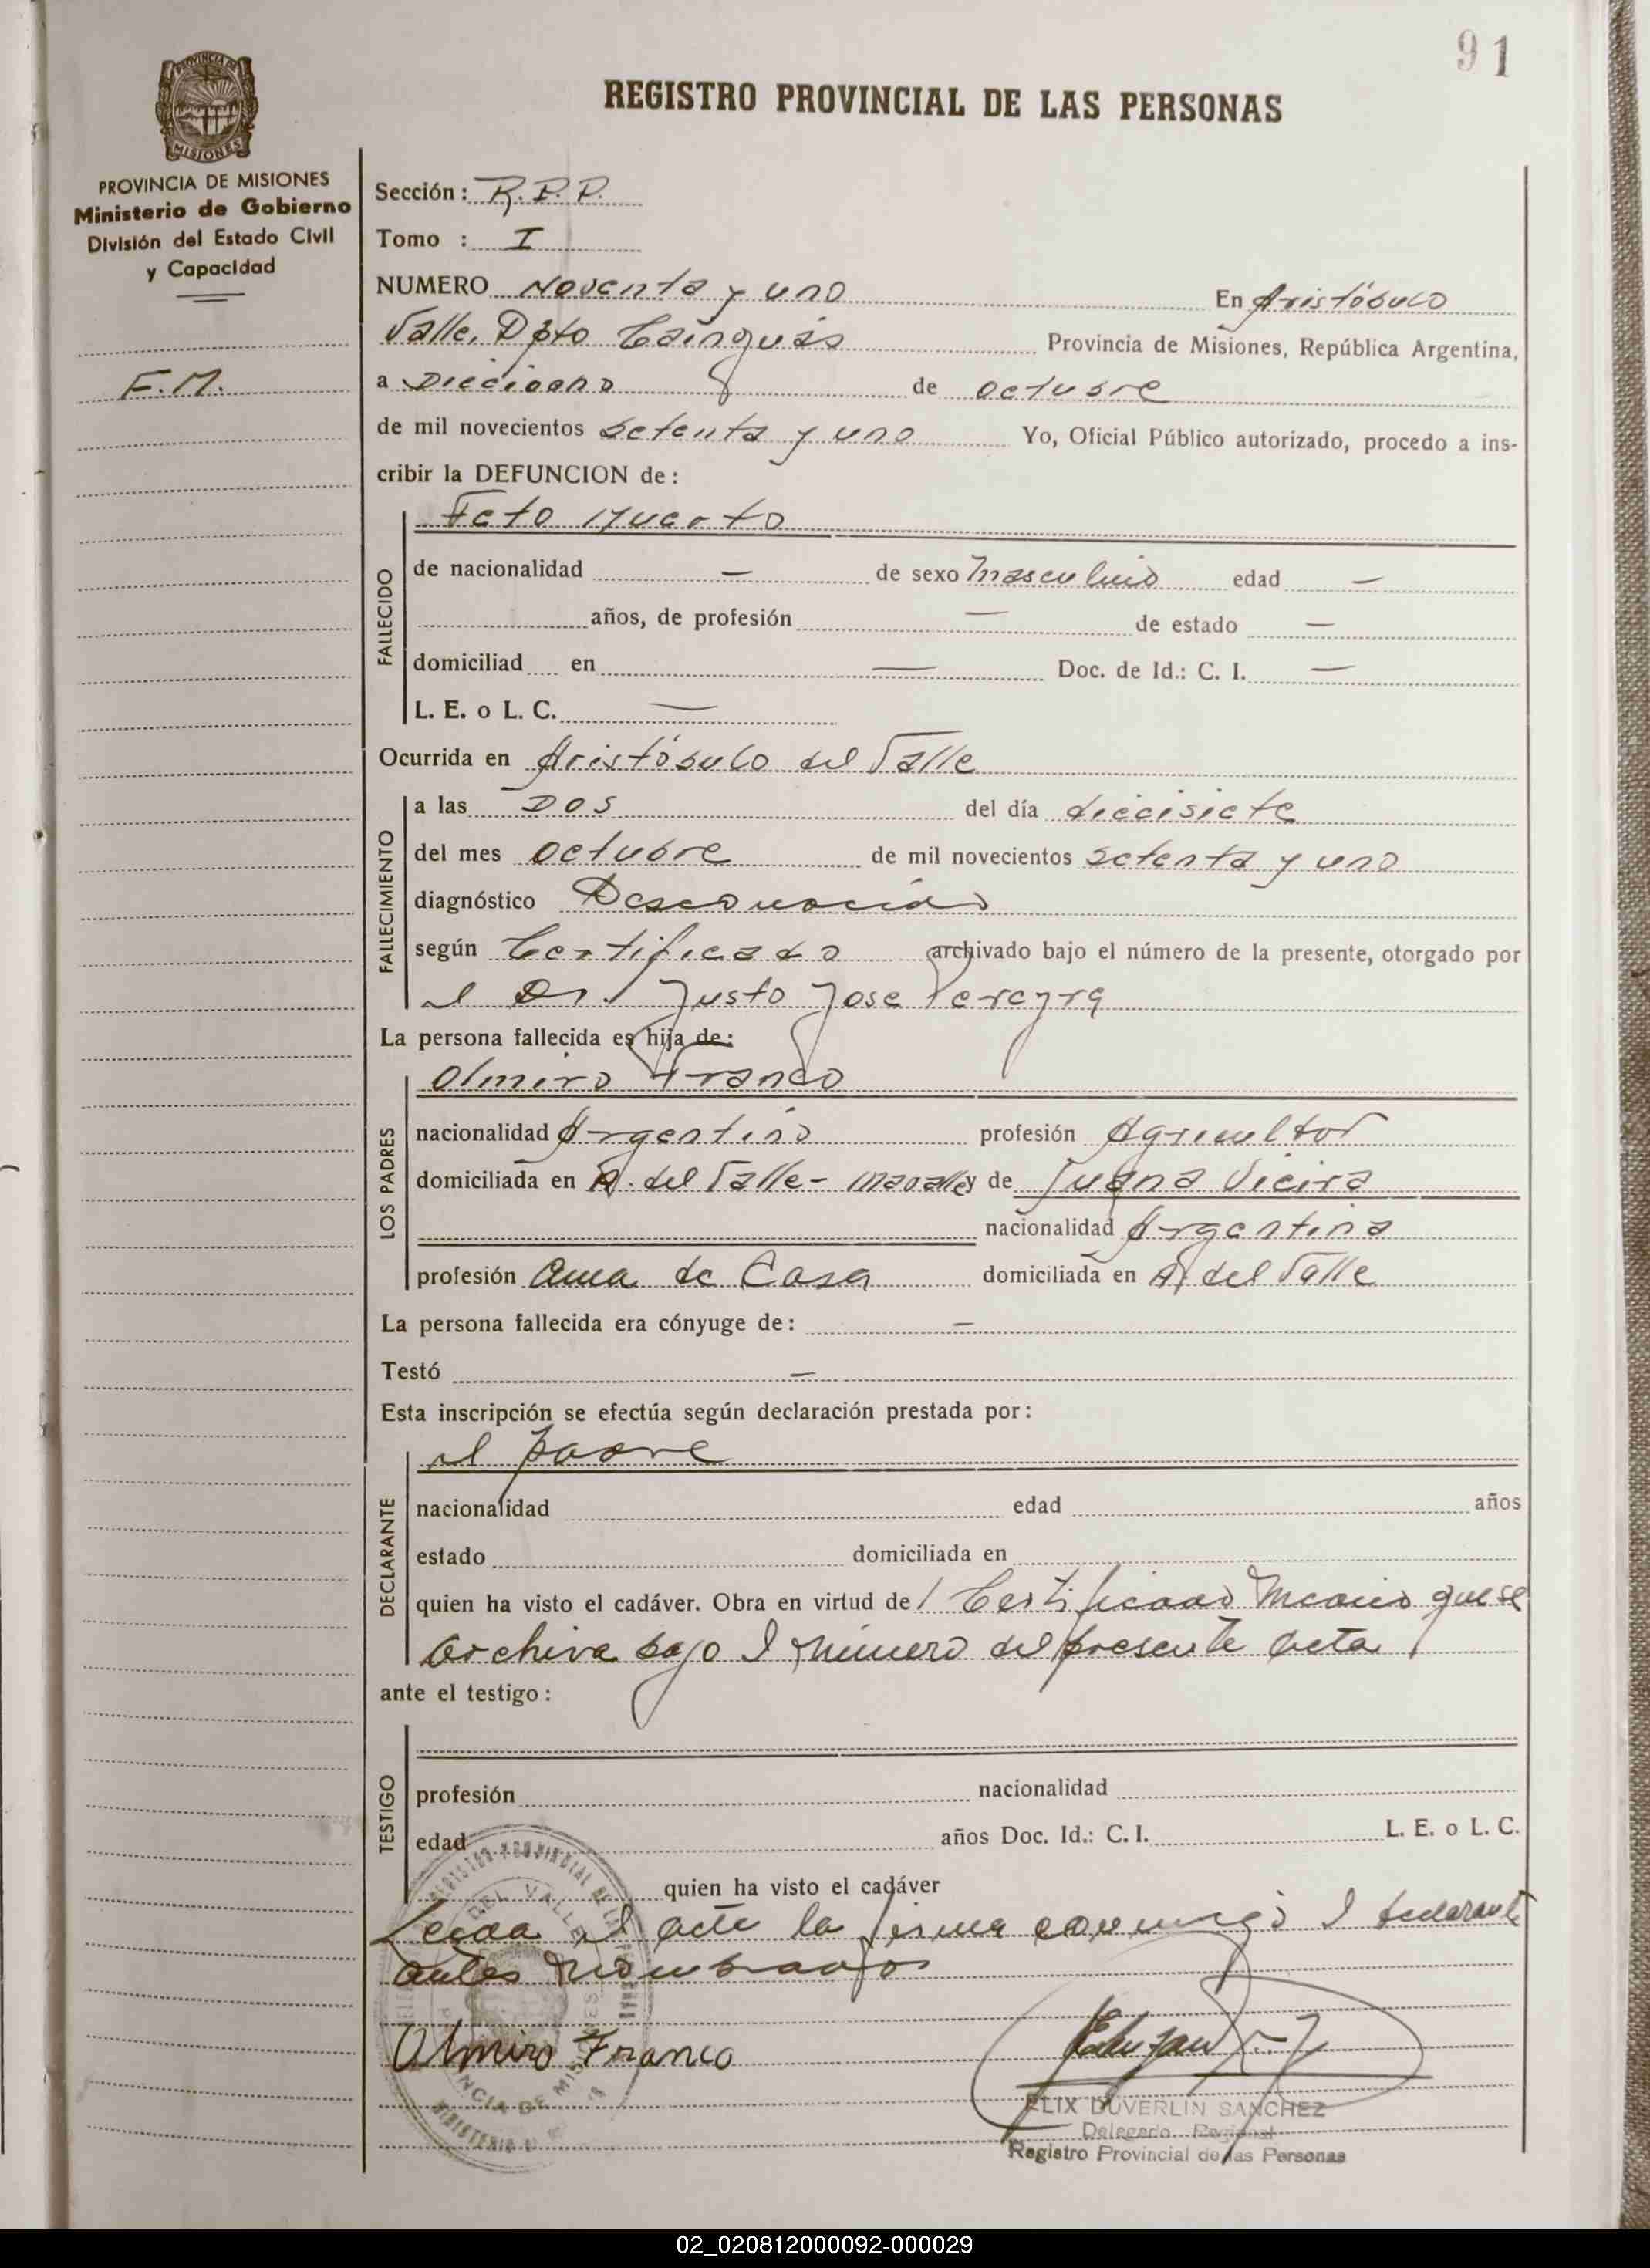 91
REGISTRO PROVINCIAL DE LAS PERSONAS
PROVINCIA DE MISIONES
Ministerio de Gobierno
División del Estado Civil
y Capacidad
F.M.
Sección: R.P.P.
Tomo : I
NUMERO Noventa y uno En Aristóbulo
Valle, Dpto Cainguás Provincia de Misiones, República Argentina,
a Dieciocho de octubre
de mil novecientos setenta y uno Yo, Oficial Público autorizado, procedo a ins-
cribir la DEFUNCION de:
FALLECIDO
Feto Muerto
de nacionalidad — de sexo Masculino edad —
años, de profesión — de estado —
domiciliad en — Doc. de Id.: C. I. —
L. E. o L. C. —
Ocurrida en Aristóbulo del Valle
FALLECIMIENTO
a las Dos del día diecisiete
del mes octubre de mil novecientos setenta y uno
diagnóstico Desconocido
según Certificado archivado bajo el número de la presente, otorgado por
el Dr. Justo Jose Pereyra
La persona fallecida es hija de:
LOS PADRES
Olmiro Franco
nacionalidad Argentino profesión Agricultor
domiciliada en A. del Valle- y de Juana Vieira
nacionalidad Argentina
profesión Ama de Casa domiciliada en A. del Valle
La persona fallecida era cónyuge de: —
Testó —
Esta inscripción se efectúa según declaración prestada por:
DECLARANTE
el padre
nacionalidad edad años
estado domiciliada en
quien ha visto el cadáver. Obra en virtud de / Certificado Medico que se
archiva bajo el número del presente acta
ante el testigo:
TESTIGO
profesión nacionalidad
edad años Doc. Id.: C. I. L. E. o L. C.
quien ha visto el cadáver
Leida el acta la firma conmigo el declarante
antes nombrado
Olmiro Franco
REGISTRO PROVINCIAL DE LAS PERSONAS
DEL VALLE
PROVINCIA DE MISIONES
MINISTERIO
FELIX DUVERLIN SANCHEZ
Delegado Regional
Registro Provincial de las Personas
02_020812000092-000029